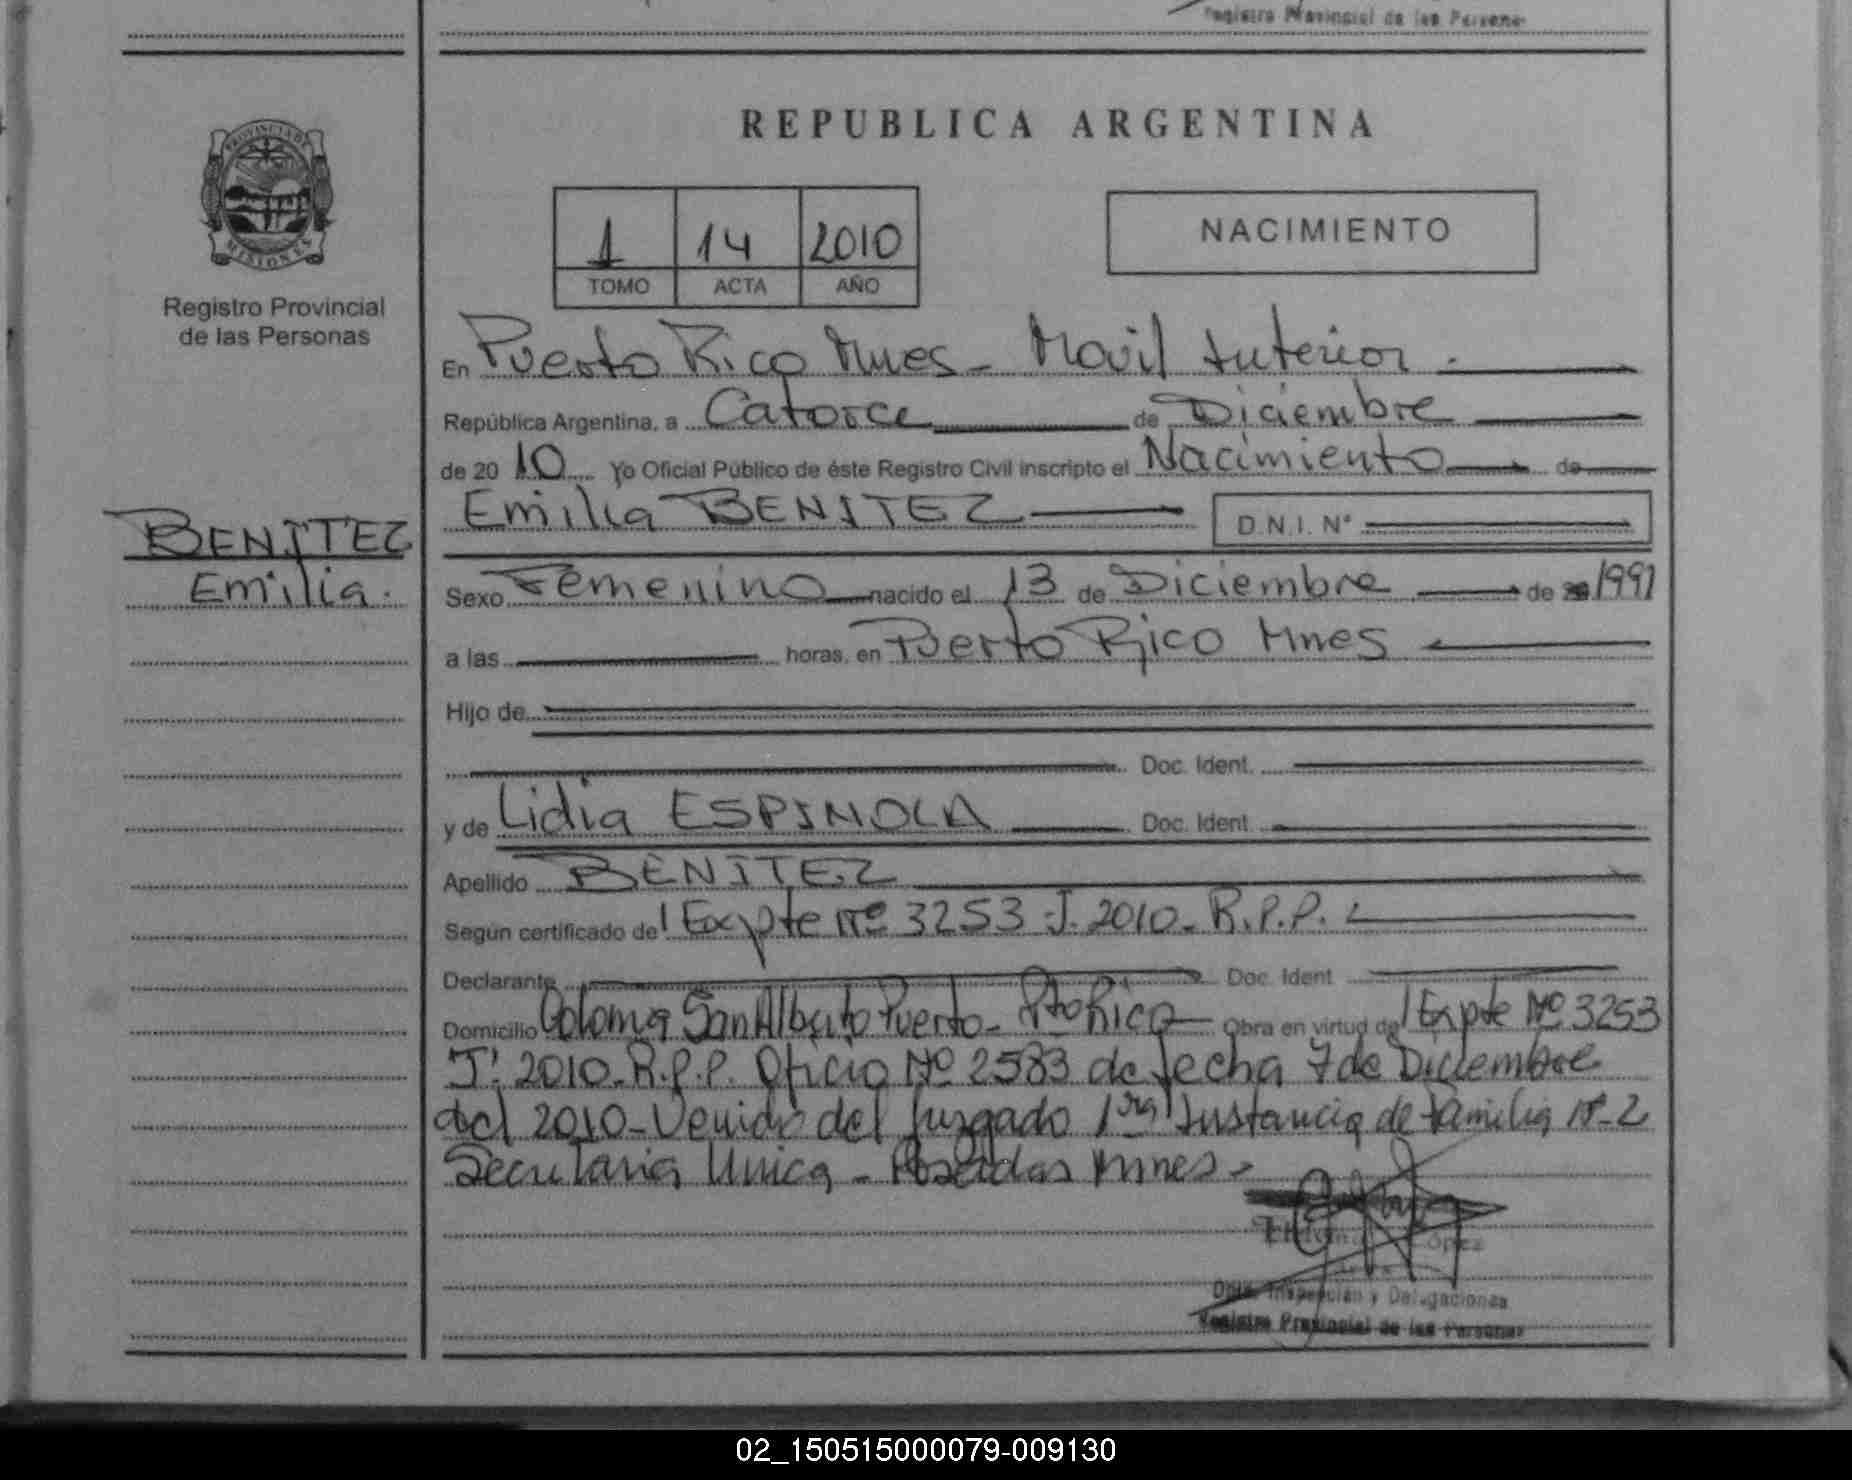 Registro Provincial de las Personas
PROVINCIA DE
MISIONES
Registro Provincial
de las Personas
BENITEZ
Emilia.
REPUBLICA ARGENTINA
1 14 2010
TOMO ACTA AÑO
NACIMIENTO
En Puerto Rico Mnes - Movil Interior.
República Argentina, a Catorce de Diciembre
de 20 10 Yo Oficial Público de éste Registro Civil inscripto el Nacimiento de
Emilia BENITEZ D.N.I. N°
Sexo Femenino nacido el 13 de Diciembre de 1991
a las horas, en Puerto Rico Mnes
Hijo de
Doc. Ident.
y de Lidia ESPINOLA Doc. Ident.
Apellido BENITEZ
Según certificado de Expte Nº 3253 J. 2010- R.P.P.
Declarante Doc. Ident
Domicilio Colonia San Alberto Puerto- Pto Rico Obra en virtud de Expte Nº 3253
J. 2010- R.P.P. Oficio Nº 2583 de fecha 7 de Diciembre
del 2010- Venido del Juzgado 1ra Instancia de familia Nº 2
Secretaria Unica - Posadas Mnes-
López
Dpto. Inspección y Delegaciones
Registro Provincial de las Personas
02_150515000079-009130